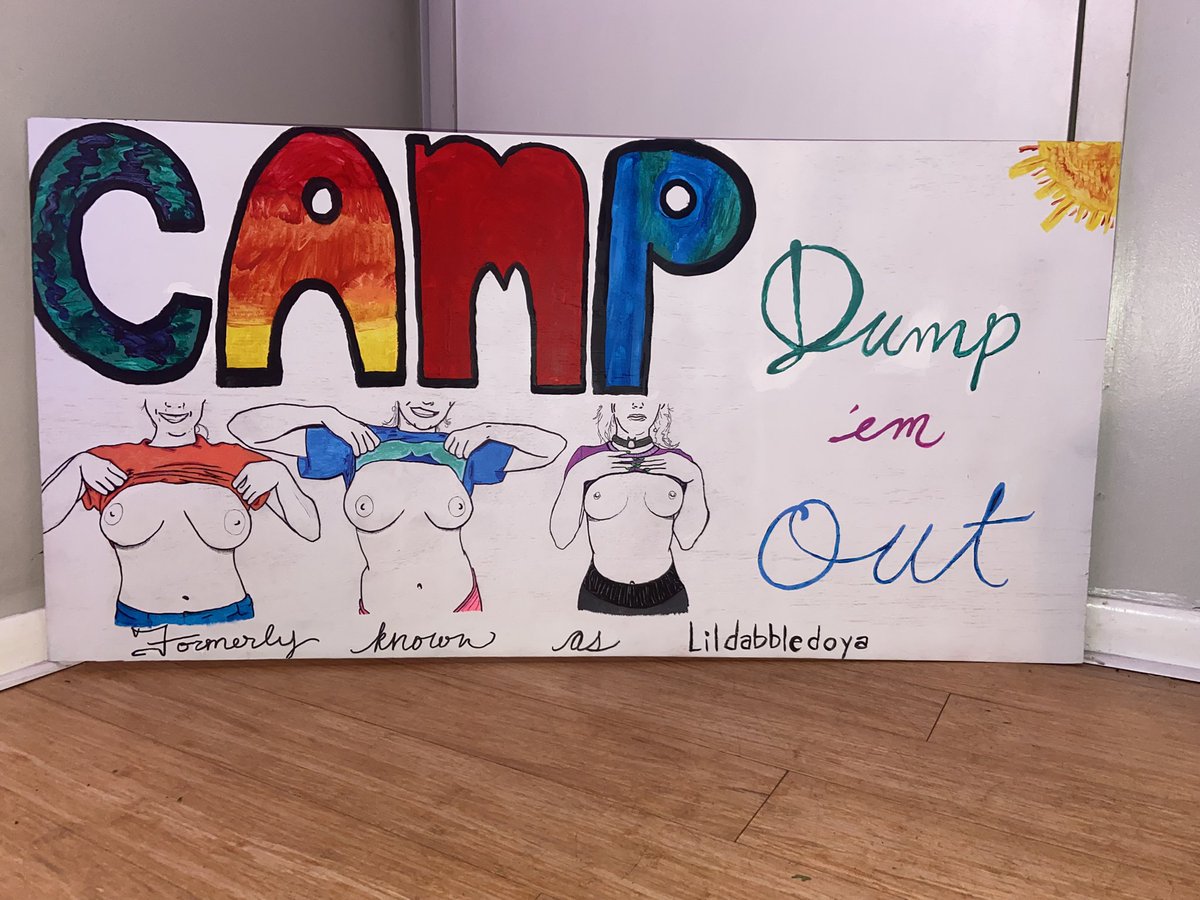 CAMP
Dump
'em
Out
Formerly known as Lildabbledoya